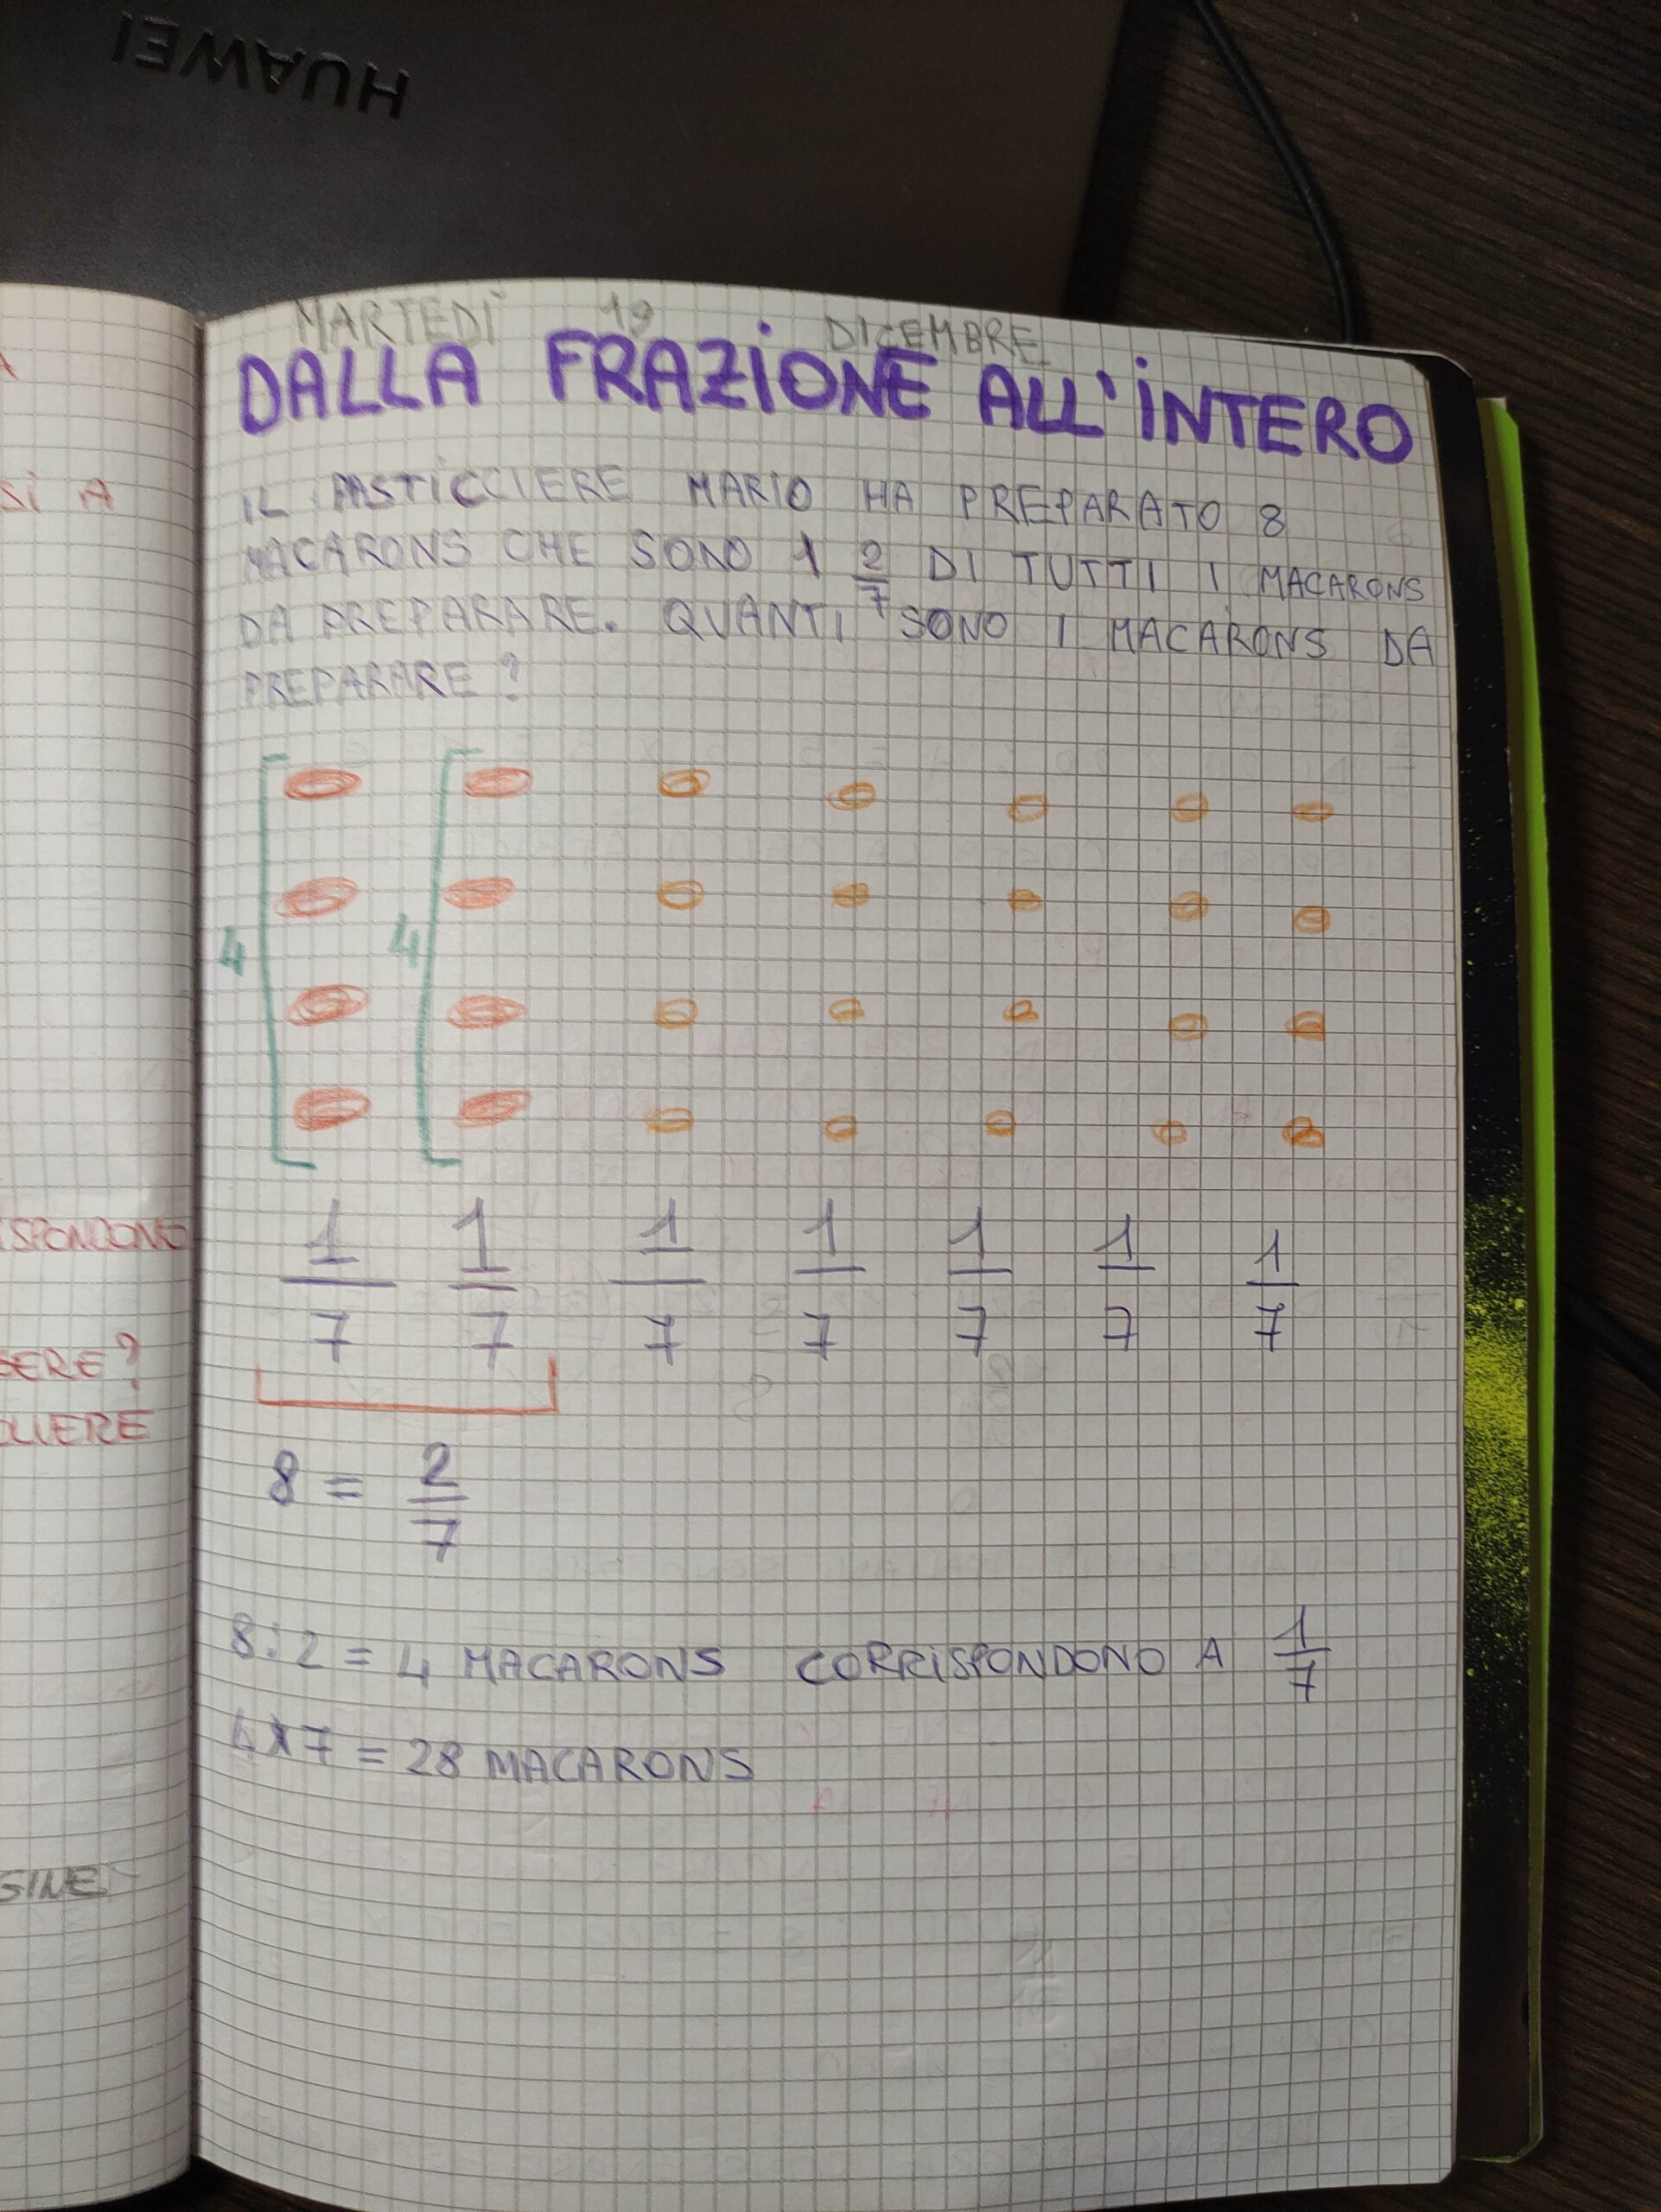 HUAWEI
MARTEDÌ 19 DICEMBRE
DALLA FRAZIONE ALL'INTERO
IL PASTICCIERE MARIO HA PREPARATO 8
MACARONS CHE SONO I 2/7 DI TUTTI I MACARONS
DA PREPARARE. QUANTI SONO I MACARONS DA
PREPARARE?
4 4
1/7 1/7 1/7 1/7 1/7 1/7 1/7
8 = 2/7
8:2 = 4 MACARONS CORRISPONDONO A 1/7
4x7 = 28 MACARONS
SI A